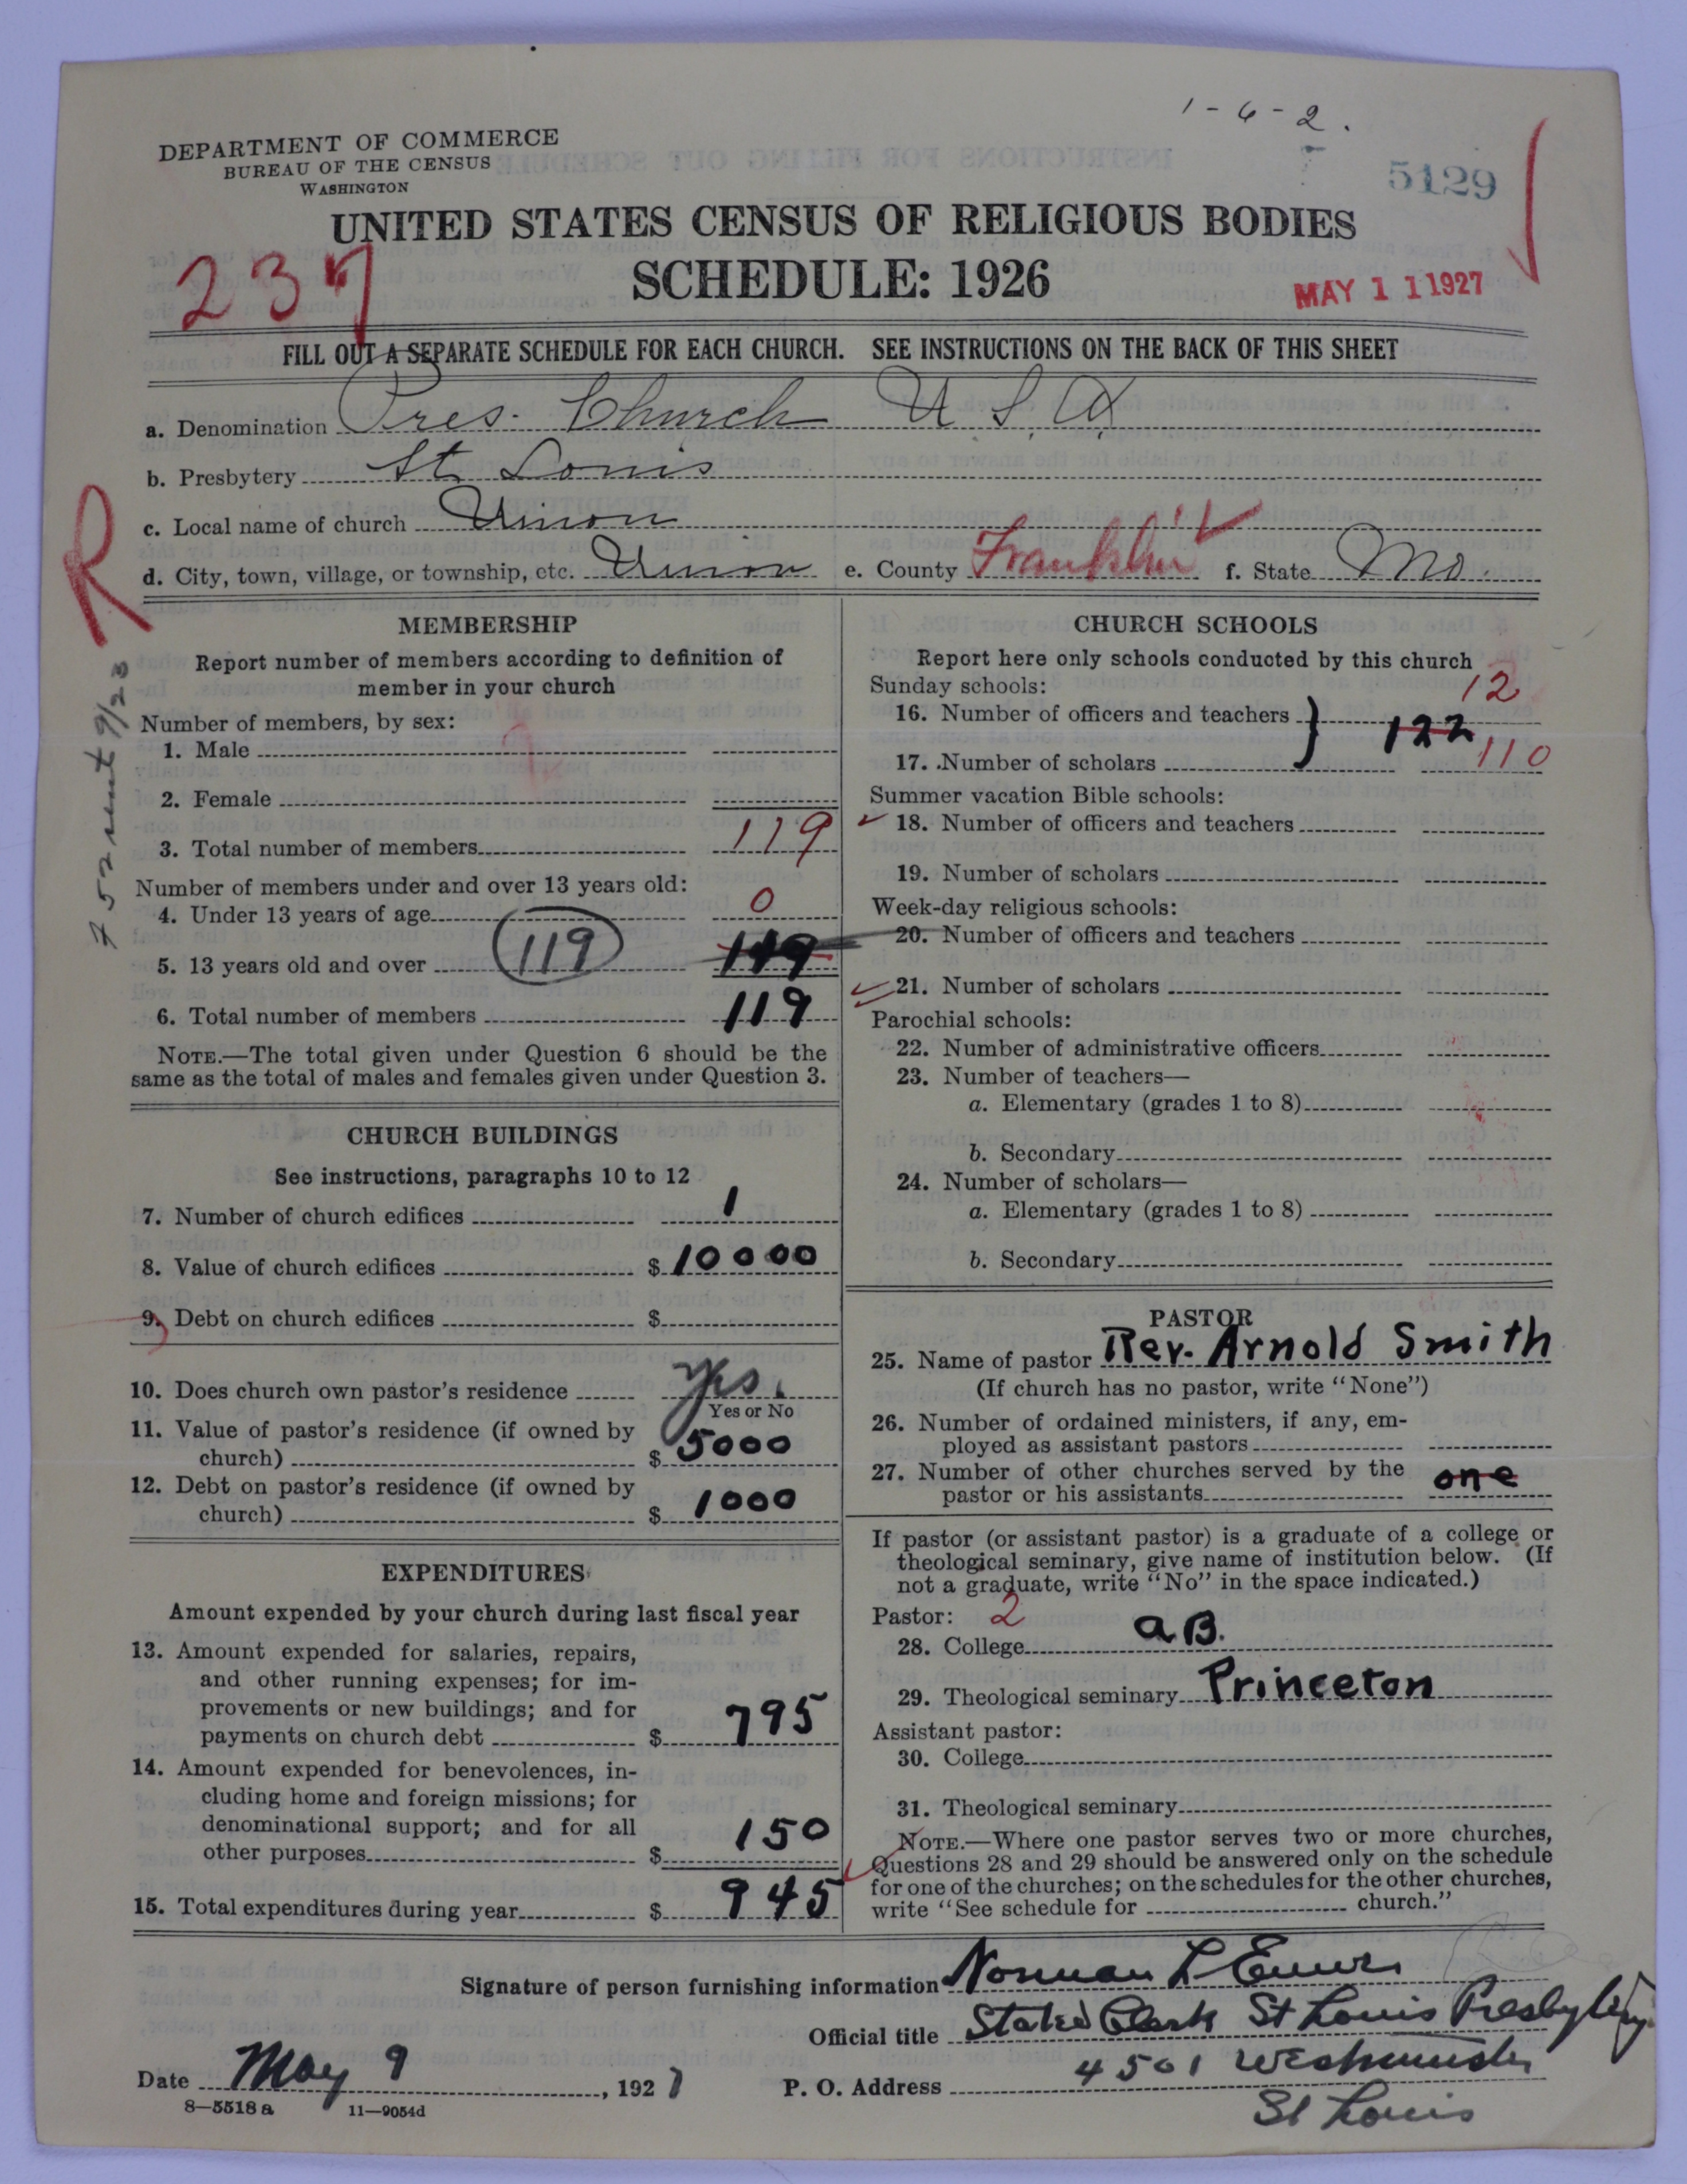 1-6-2.
DEPARTMENT OF COMMERCE
BUREAU OF THE CENSUS
WASHINGTON
5129
UNITED STATES CENSUS OF RELIGIOUS BODIES
SCHEDULE: 1926
237
MAY 11 1927
FILL OUT A SEPARATE SCHEDULE FOR EACH CHURCH. SEE INSTRUCTIONS ON THE BACK OF THIS SHEET
a. Denomination Pres. Church U.S.A.
b. Presbytery St. Louis
c. Local name of church Union
d. City, town, village, or township, etc. Union e. County Franklin f. State Mo.
R
MEMBERSHIP
Report number of members according to definition of
member in your church
Number of members, by sex:
1. Male
2. Female
3. Total number of members 119
Number of members under and over 13 years old:
4. Under 13 years of age 0
5. 13 years old and over 119 119
6. Total number of members 119
NOTE.—The total given under Question 6 should be the
same as the total of males and females given under Question 3.
CHURCH BUILDINGS
See instructions, paragraphs 10 to 12
7. Number of church edifices 1
8. Value of church edifices $ 10000
9. Debt on church edifices $
10. Does church own pastor's residence Yes.
Yes or No
11. Value of pastor's residence (if owned by
church) $ 5000
12. Debt on pastor's residence (if owned by
church) $ 1000
EXPENDITURES
Amount expended by your church during last fiscal year
13. Amount expended for salaries, repairs,
and other running expenses; for im-
provements or new buildings; and for
payments on church debt $ 795
14. Amount expended for benevolences, in-
cluding home and foreign missions; for
denominational support; and for all
other purposes $ 150
15. Total expenditures during year $ 945
CHURCH SCHOOLS
Report here only schools conducted by this church
Sunday schools: 12
16. Number of officers and teachers } 122
17. Number of scholars 110
Summer vacation Bible schools:
18. Number of officers and teachers
19. Number of scholars
Week-day religious schools:
20. Number of officers and teachers
21. Number of scholars
Parochial schools:
22. Number of administrative officers
23. Number of teachers—
a. Elementary (grades 1 to 8)
b. Secondary
24. Number of scholars—
a. Elementary (grades 1 to 8)
b. Secondary
PASTOR
25. Name of pastor Rev. Arnold Smith
(If church has no pastor, write "None")
26. Number of ordained ministers, if any, em-
ployed as assistant pastors
27. Number of other churches served by the
pastor or his assistants one
If pastor (or assistant pastor) is a graduate of a college or
theological seminary, give name of institution below. (If
not a graduate, write "No" in the space indicated.)
Pastor: 2
28. College A.B.
29. Theological seminary Princeton
Assistant pastor:
30. College
31. Theological seminary
NOTE.—Where one pastor serves two or more churches,
Questions 28 and 29 should be answered only on the schedule
for one of the churches; on the schedules for the other churches,
write "See schedule for church."
Signature of person furnishing information Norman L
Official title Stated Clerk St Louis Presbytery
Date May 9, 1927 P. O. Address 4501 Westminster
St Louis
8—5518a 11—9054d